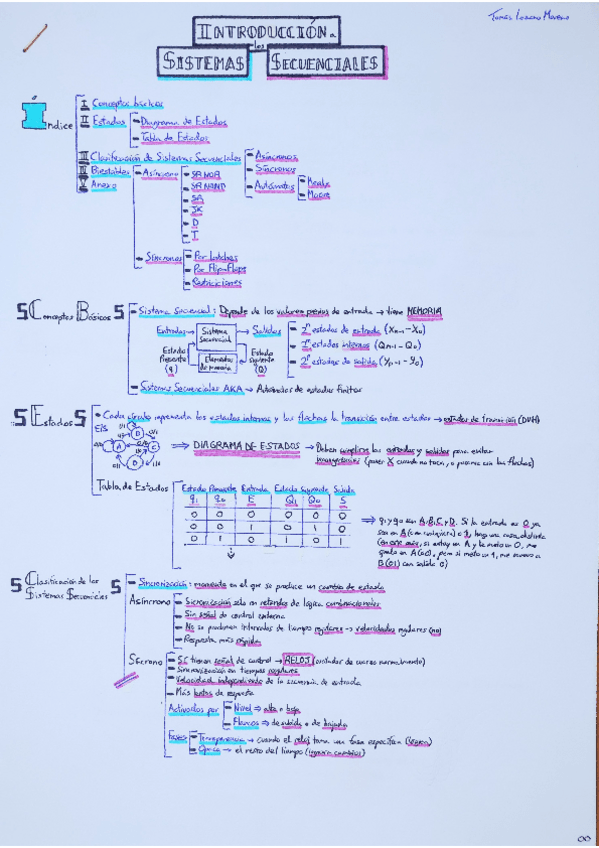 Tomás Lozano Moreno
INTRODUCCIÓN a
los
SISTEMAS SECUENCIALES
Indice
I Conceptos básicos
II Estados
Diagrama de Estados
Tabla de Estados
III Clasificación de Sistemas Secuenciales
Asíncronos
Síncronos
Autómatas
Mealy
Moore
IV Biestables
V Anexo
Asíncrono
SR NOR
SR NAND
SR
JK
D
T
Síncronos
Por Latches
Por Flip-Flops
Conceptos Básicos
Sistema Secuencial: Depende de los valores previos de entrada → tiene MEMORIA
Entradas → Sistema Secuencial → Salidas
Estado Presente (q)
Elementos de Memoria
Estado Siguiente (Q)
2ⁿ estados de entrada (Xn-1 - X0)
2ⁿ estados internos (Qn-1 - Q0)
2ⁿ estados de salida (Yn-1 - Y0)
Sistemas Secuenciales AKA → Autómatas de estados finitos
Estados
Cada círculo representa los estados internos y las flechas la transición entre estados → estados de transición
E/S
A
B
C
D
⇒ DIAGRAMA DE ESTADOS → Deben cumplirse las entradas y salidas para evitar
incongruencias (poner X cuando no toca, o ponerse sin las flechas)
Tabla de Estados
Estado Presente Entrada Estado Siguiente Salida
q1 q0 E Q1 Q0 S
0 0 0 0 0 0
0 0 1 0 1 0
0 1 0 1 0 1
⇒ q1 y q0 son A, B, C y D. Si la entrada es 0 ya
sea en A (en cualquiera) o 1, hago una cosa distinta
(en este caso, si estoy en A y le meto un 0, me
quedo en A (00), pero si meto un 1, me muevo a
B (01) con salida 0)
Clasificación de los
Sistemas Secuenciales
Sincronización: momento en el que se produce un cambio de estado
Asíncrono
Sincronización sólo en retardos de lógica combinacionales
Sin señal de control externa
No se producen intervalos de tiempo regulares → velocidades regulares (no)
Respuesta más rápida
Síncrono
Sí tienen señal de control → RELOJ (oscilador de cuarzo normalmente)
Sincronización en tiempos regulares
Velocidad independiente de la secuencia de entrada
Más lentos de respuesta
Activados por
Nivel ⇒ alto o bajo
Flancos ⇒ de subida o de bajada
Fases
Transparencia → cuando el reloj toma una fase específica
Opaca → el resto del tiempo (ignora cambios)